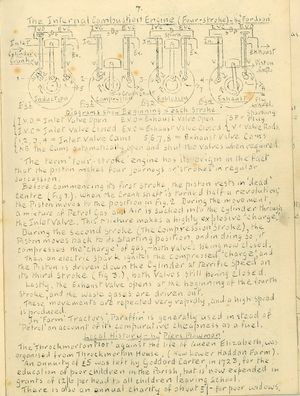 7.
The Internal Combustion Engine (Four-stroke) - by "Fordson"
Inlet
Exhaust
Piston
Shaft
Fly
Wheel
Fig 1 Induction Fig 2 Compression Explosion Exhaust
Diagrams show Beginning of each stroke
IVO = Inlet Valve Open EVO = Exhaust Valve Open SP = Plugs
IVC = Inlet Valve Closed EVC = Exhaust Valve Closed V = Valve Rods
1, 2, 3, 4 = Inlet Valve Cams 5, 6, 7, 8 = Exhaust Valve Cams
The Cams automatically open and shut the valves when required.
The term "four-stroke" engine has its origin in the fact
that the piston makes four journeys or strokes in regular
succession.
Before commencing its first stroke, the piston rests in "dead
centre (fig 1). When the crankshaft is turned half a revolution,
the Piston moves to the position in Fig. 2. During the movement
a mixture of Petrol Gas and Air is sucked into the Cylinder through
the Inlet Valve. This mixture makes a highly explosive "charge".
During the second stroke (The Compression Stroke), the
Piston moves back to its starting position, and in doing so it
compresses the "charge" of gas, both valves being now closed.
Then an electric spark ignites the compressed "charge", and
the Piston is driven down the Cylinder at terrific speed on
its third Stroke (fig 3), both Valves still being closed.
Lastly, the Exhaust Valve opens at the beginning of the fourth
Stroke, and the waste gases are driven out.
These movements are repeated very rapidly, and a high speed
is produced.
In "Farm" Tractors, Paraffin is generally used instead of
Petrol on account of its comparative cheapness as a fuel.
Local History - by Piers Plowman
The Throckmorton Plot against the life of Queen Elizabeth, was
organised from Throckmorton House, (Now Lower Haddon Farm).
An annuity of £5 was left by Goddard Carter, in 1723, for the
education of poor children in the Parish, but is now expended in
grants of 12/6 per head to all children leaving School.
There is also an annual charity of about £5 for poor widows,